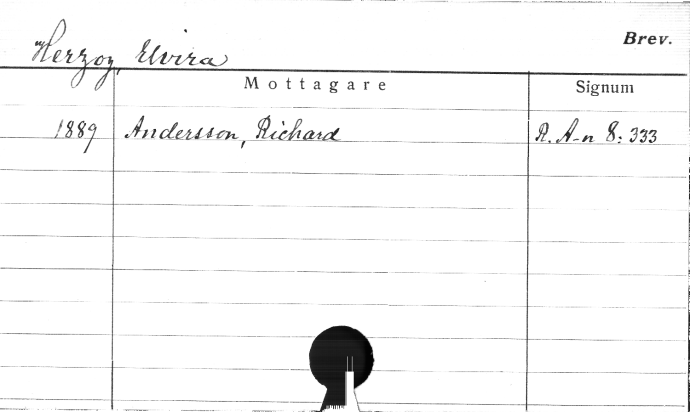 Herzog, Elvira
Brev.
Mottagare Signum
1889 Andersson, Richard R. A-n 8: 333